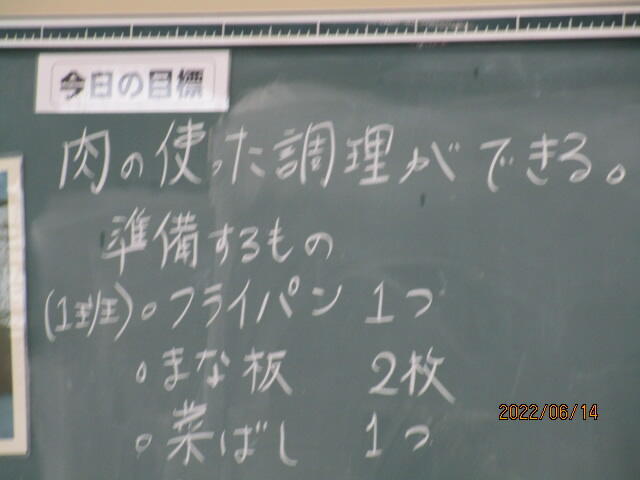 今日の目標
肉の使った調理ができる。
準備するもの
(1班)。フライパン 1つ
。まな板 2枚
。菜ばし 1つ
2022/06/14